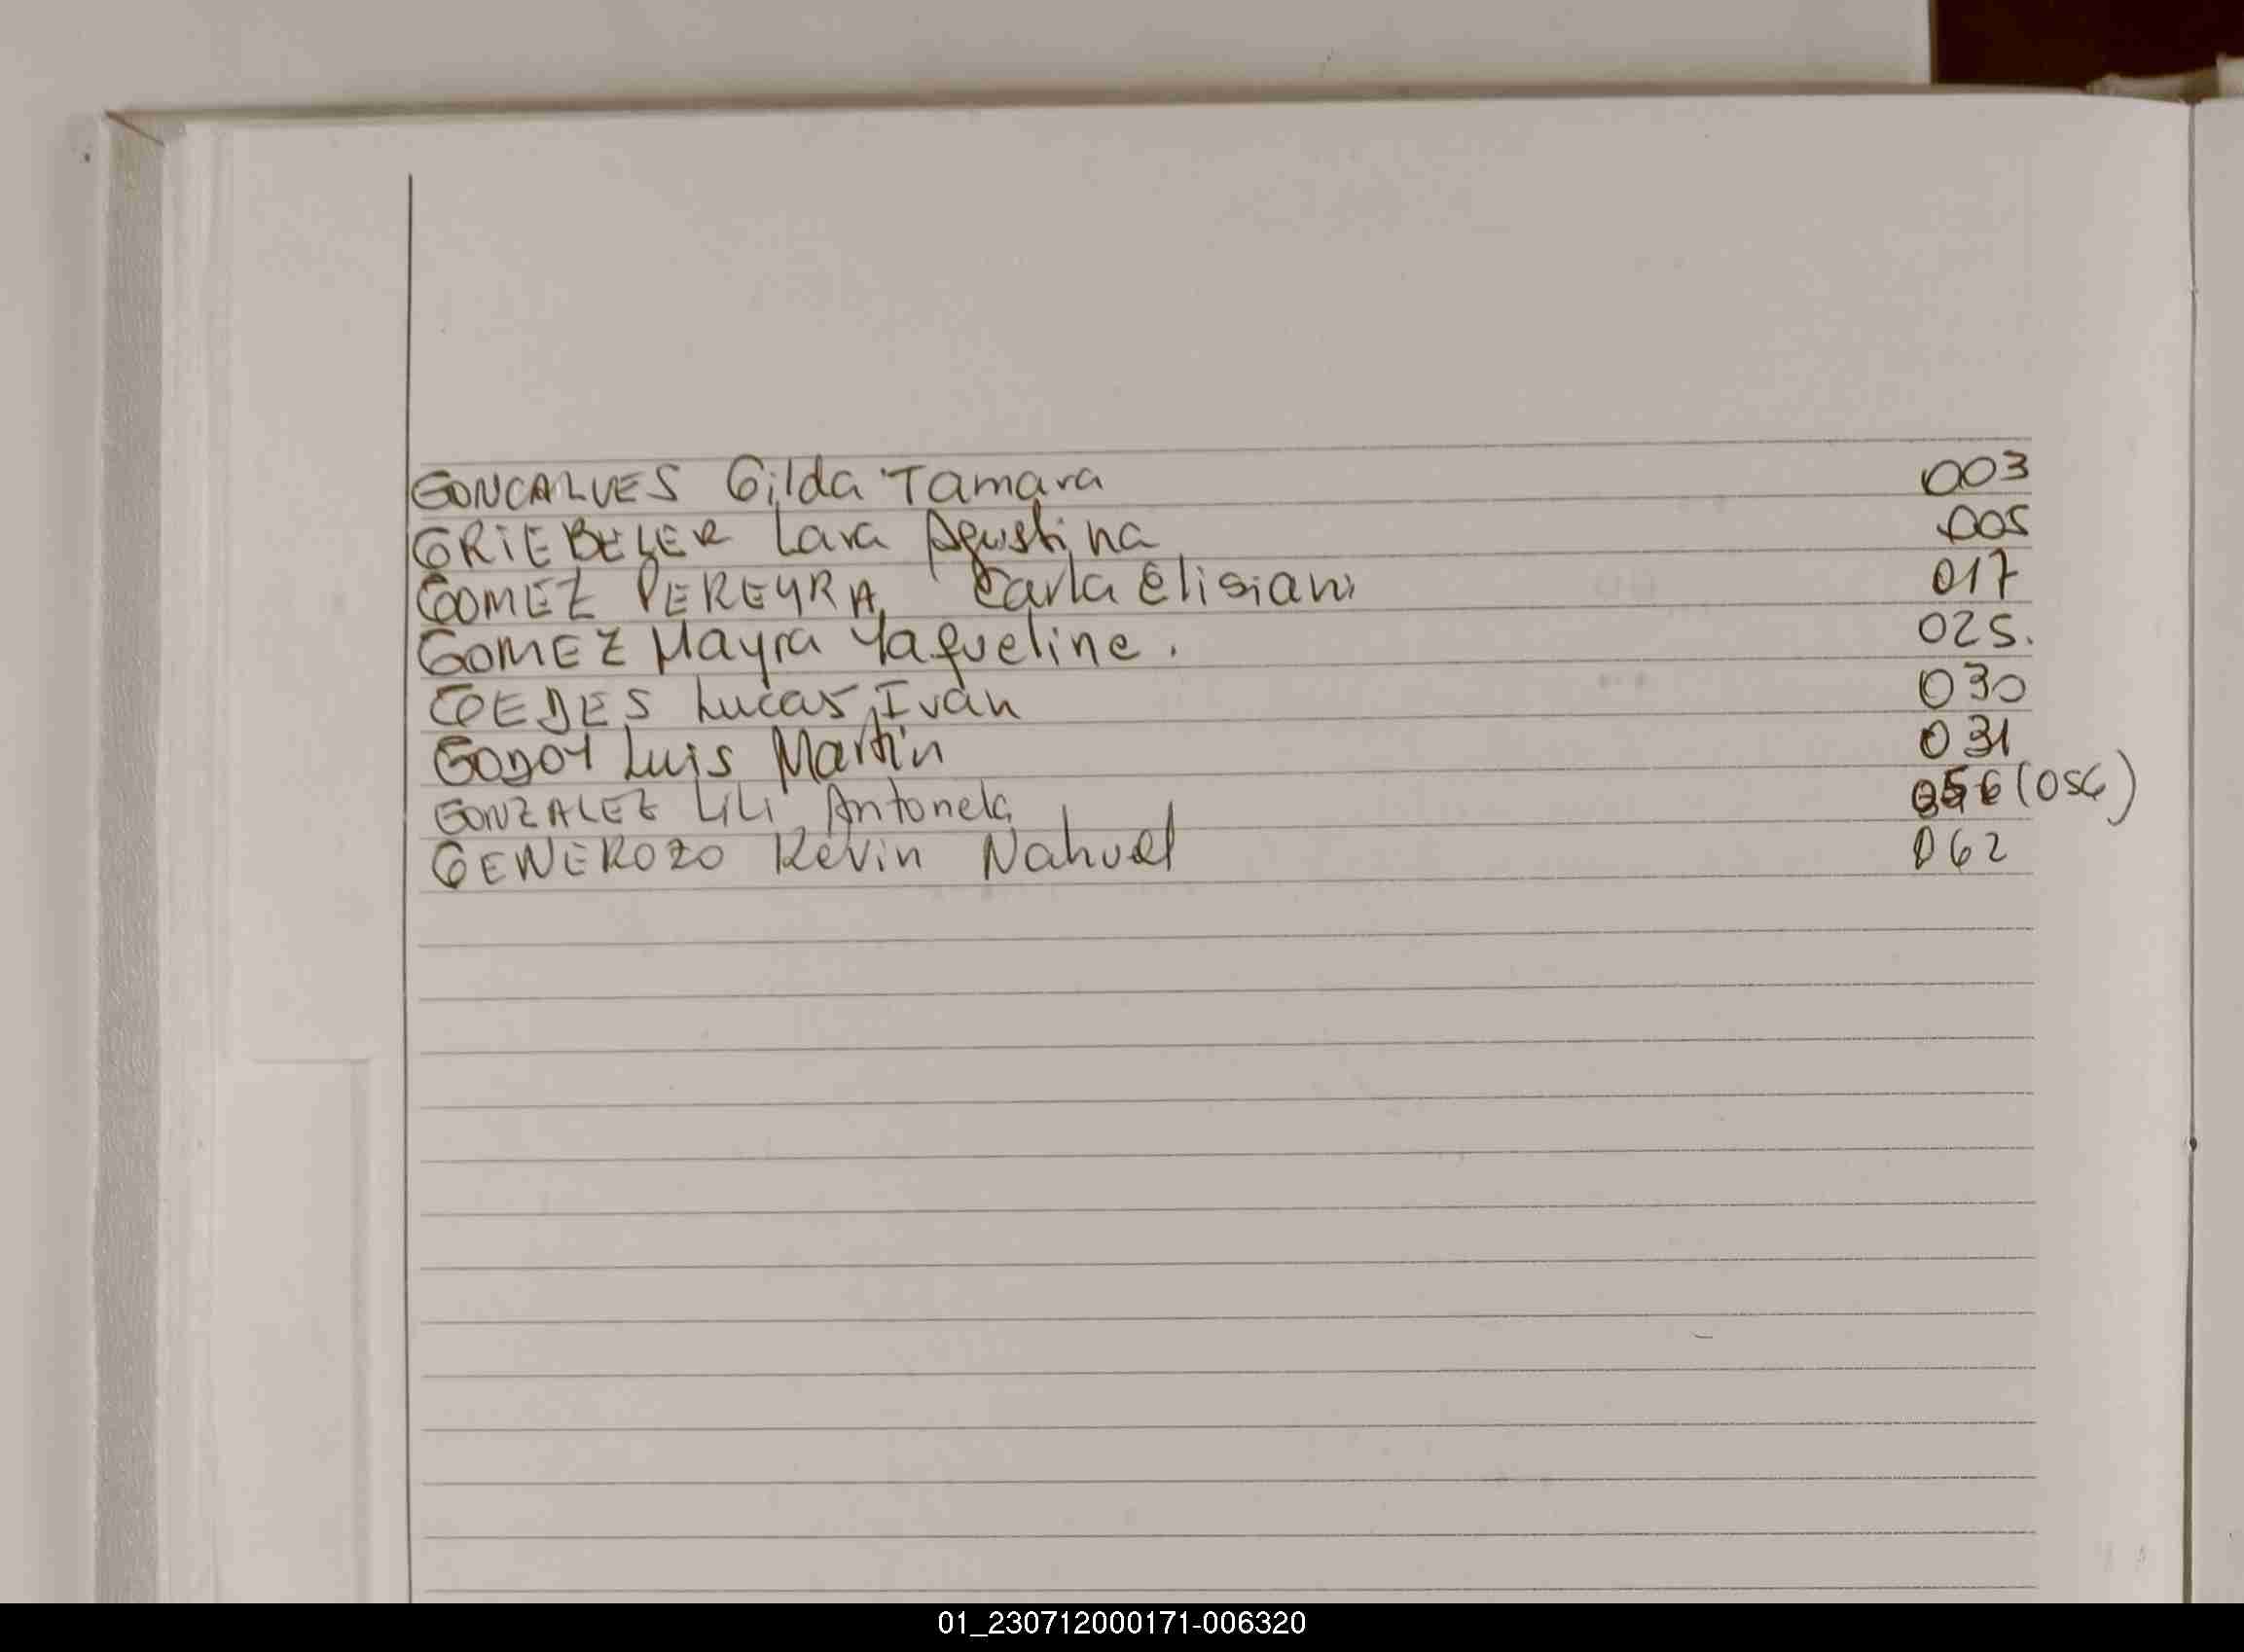 GONCALVES Gilda Tamara 003
GRIEBELER Lara Agustina 005
GOMEZ PEREYRA, Carla Elisiani 017
GOMEZ Mayra Yaqueline. 025.
GEDES Lucas Ivan 030
GODOY Luis Martín 031
GONZALEZ Lili Antonela 056 (056)
GENEROZO Kevin Nahuel 062
01_230712000171-006320